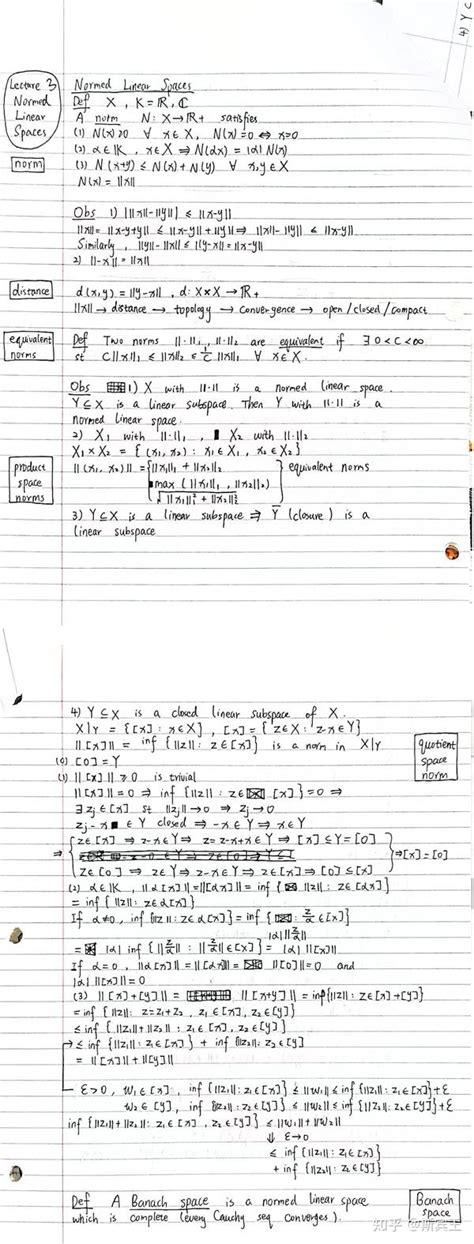 4) Y C
Lecture 3
Normed
Linear
Spaces
Normed Linear Spaces
Def X, K = ℝ, ℂ
A norm N: X→ℝ+ satisfies
(1) N(x)≥0 ∀ x∈X, N(x)=0 ⇔ x=0
(2) α∈K, x∈X ⇒ N(αx) = |α| N(x)
norm
(3) N(x+y) ≤ N(x) + N(y) ∀ x,y∈X
N(x) = ||x||
Obs 1) | ||x||-||y|| | ≤ ||x-y||
||x|| = ||x-y+y|| ≤ ||x-y|| + ||y|| ⇒ ||x||-||y|| ≤ ||x-y||
Similarly, ||y||-||x|| ≤ ||y-x|| = ||x-y||
2) ||-x|| = ||x||
distance
d(x,y) = ||y-x||, d: X×X → ℝ+
||x|| → distance → topology → convergence → open/closed/compact
equivalent
norms
Def Two norms ||·||₁, ||·||₂ are equivalent if ∃ 0<C<∞
st C||x||₁ ≤ ||x||₂ ≤ 1/C ||x||₁ ∀ x∈X.
Obs 1) X with ||·|| is a normed linear space.
Y⊆X is a linear subspace. Then Y with ||·|| is a
normed linear space.
2) X₁ with ||·||₁, X₂ with ||·||₂
X₁×X₂ = {(x₁, x₂) : x₁∈X₁, x₂∈X₂}
product
space
norms
||(x₁, x₂)|| = { ||x₁||₁ + ||x₂||₂
max (||x₁||₁, ||x₂||₂)
√(||x₁||₁² + ||x₂||₂²) } equivalent norms
3) Y⊆X is a linear subspace ⇒ Ȳ (closure) is a
linear subspace
4) Y⊆X is a closed linear subspace of X.
X|Y = {[x] : x∈X}, [x] = {z∈X : z-x∈Y}
||[x]|| = inf {||z|| : z∈[x]} is a norm in X|Y
quotient
space
norm
(0) [0] = Y
(1) ||[x]|| ≥ 0 is trivial
||[x]|| = 0 ⇒ inf {||z|| : z∈[x]} = 0 ⇒
∃ zj∈[x] st ||zj||→0 ⇒ zj→0
zj-x ∈ Y closed ⇒ -x∈Y ⇒ x∈Y
⇒ { z∈[x] ⇒ z-x∈Y ⇒ z = z-x+x∈Y ⇒ [x]⊆Y=[0]
z∈[0] ⇒ z∈Y ⇒ z-x∈Y ⇒ z∈[x] ⇒ [0]⊆[x] } ⇒ [x]=[0]
(2) α∈K, ||α[x]|| = ||[αx]|| = inf {||z|| : z∈[αx]}
= inf {||z|| : z∈α[x]}
If α≠0, inf {||z|| : z∈α[x]} = inf { : z/α∈[x]}
|α| ||z/α||
= |α| inf {||z/α|| : ||z/α||∈[x]} = |α| ||[x]||
If α=0, ||α[x]|| = ||[αx]|| = ||[0]|| = 0 and
|α| ||[x]|| = 0
(3) ||[x]+[y]|| = ||[x+y]|| = inf{||z|| : z∈[x]+[y]}
= inf {||z|| : z=z₁+z₂, z₁∈[x], z₂∈[y]}
≤ inf {||z₁||+||z₂|| : z₁∈[x], z₂∈[y]}
≤ inf {||z₁|| : z₁∈[x]} + inf {||z₂|| : z₂∈[y]}
= ||[x]|| + ||[y]||
ε>0, w₁∈[x], inf {||z₁|| : z₁∈[x]} ≤ ||w₁|| ≤ inf {||z₁|| : z₁∈[x]}+ε
w₂∈[y], inf {||z₂|| : z₂∈[y]} ≤ ||w₂|| ≤ inf {||z₂|| : z₂∈[y]}+ε
inf {||z₁||+||z₂|| : z₁∈[x], z₂∈[y]} ≤ ||w₁||+||w₂||
⇓ ε→0
≤ inf {||z₁|| : z₁∈[x]}
+ inf {||z₂|| : z₂∈[y]}
Def A Banach space is a normed linear space
which is complete (every Cauchy seq converges).
Banach
space
知乎 @斯宾王